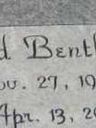 d Bent
ov. 27, 19
Apr. 13, 20